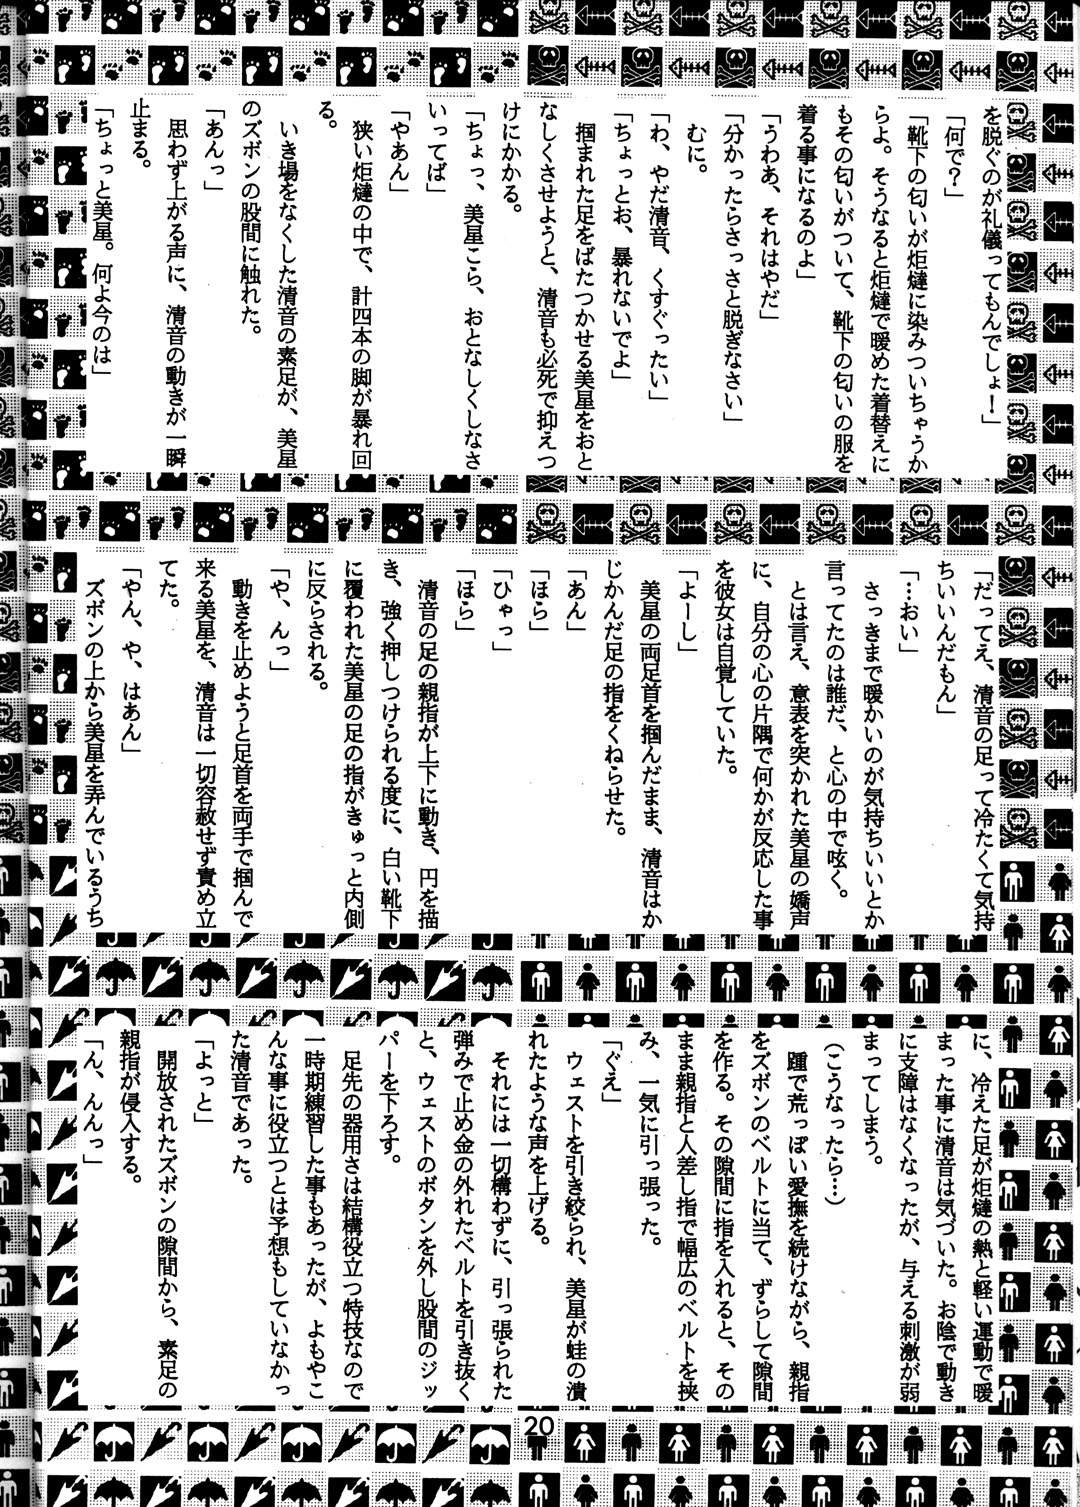 を脱ぐのが礼儀ってもんでしょ！」
「何で？」
「靴下の匂いが炬燵に染みついちゃうか
らよ。そうなると炬燵で暖めた着替えに
もその匂いがついて、靴下の匂いの服を
着る事になるのよ」
「うわあ、それはやだ」
「分かったらさっさと脱ぎなさい」
むに。
「わ、やだ清音、くすぐったい」
「ちょっとお、暴れないでよ」
掴まれた足をばたつかせる美星をおと
なしくさせようと、清音も必死で抑えつ
けにかかる。
「ちょっ、美星こら、おとなしくしなさ
いってば」
「やあん」
狭い炬燵の中で、計四本の脚が暴れ回
る。
いき場をなくした清音の素足が、美星
のズボンの股間に触れた。
「あんっ」
思わず上がる声に、清音の動きが一瞬
止まる。
「ちょっと美星。何よ今のは」
「だってえ、清音の足って冷たくて気持
ちいいんだもん」
「…おい」
さっきまで暖かいのが気持ちいいとか
言ってたのは誰だ、と心の中で呟く。
とは言え、意表を突かれた美星の嬌声
に、自分の心の片隅で何かが反応した事
を彼女は自覚していた。
「よーし」
美星の両足首を掴んだまま、清音はか
じかんだ足の指をくねらせた。
「あん」
「ほら」
「ひゃっ」
「ほら」
清音の足の親指が上下に動き、円を描
き、強く押しつけられる度に、白い靴下
に覆われた美星の足の指がきゅっと内側
に反らされる。
「や、んっ」
動きを止めようと足首を両手で掴んで
来る美星を、清音は一切容赦せず責め立
てた。
「やん、や、はあん」
ズボンの上から美星を弄んでいるうち
に、冷えた足が炬燵の熱と軽い運動で暖
まった事に清音は気づいた。お陰で動き
に支障はなくなったが、与える刺激が弱
まってしまう。
（こうなったら…）
踵で荒っぽい愛撫を続けながら、親指
をズボンのベルトに当て、ずらして隙間
を作る。その隙間に指を入れると、その
まま親指と人差し指で幅広のベルトを挟
み、一気に引っ張った。
「ぐえ」
ウェストを引き絞られ、美星が蛙の潰
れたような声を上げる。
それには一切構わずに、引っ張られた
弾みで止め金の外れたベルトを引き抜く
と、ウェストのボタンを外し股間のジッ
パーを下ろす。
足先の器用さは結構役立つ特技なので
一時期練習した事もあったが、よもやこ
んな事に役立つとは予想もしていなかっ
た清音であった。
「よっと」
開放されたズボンの隙間から、素足の
親指が侵入する。
「ん、んんっ」
20